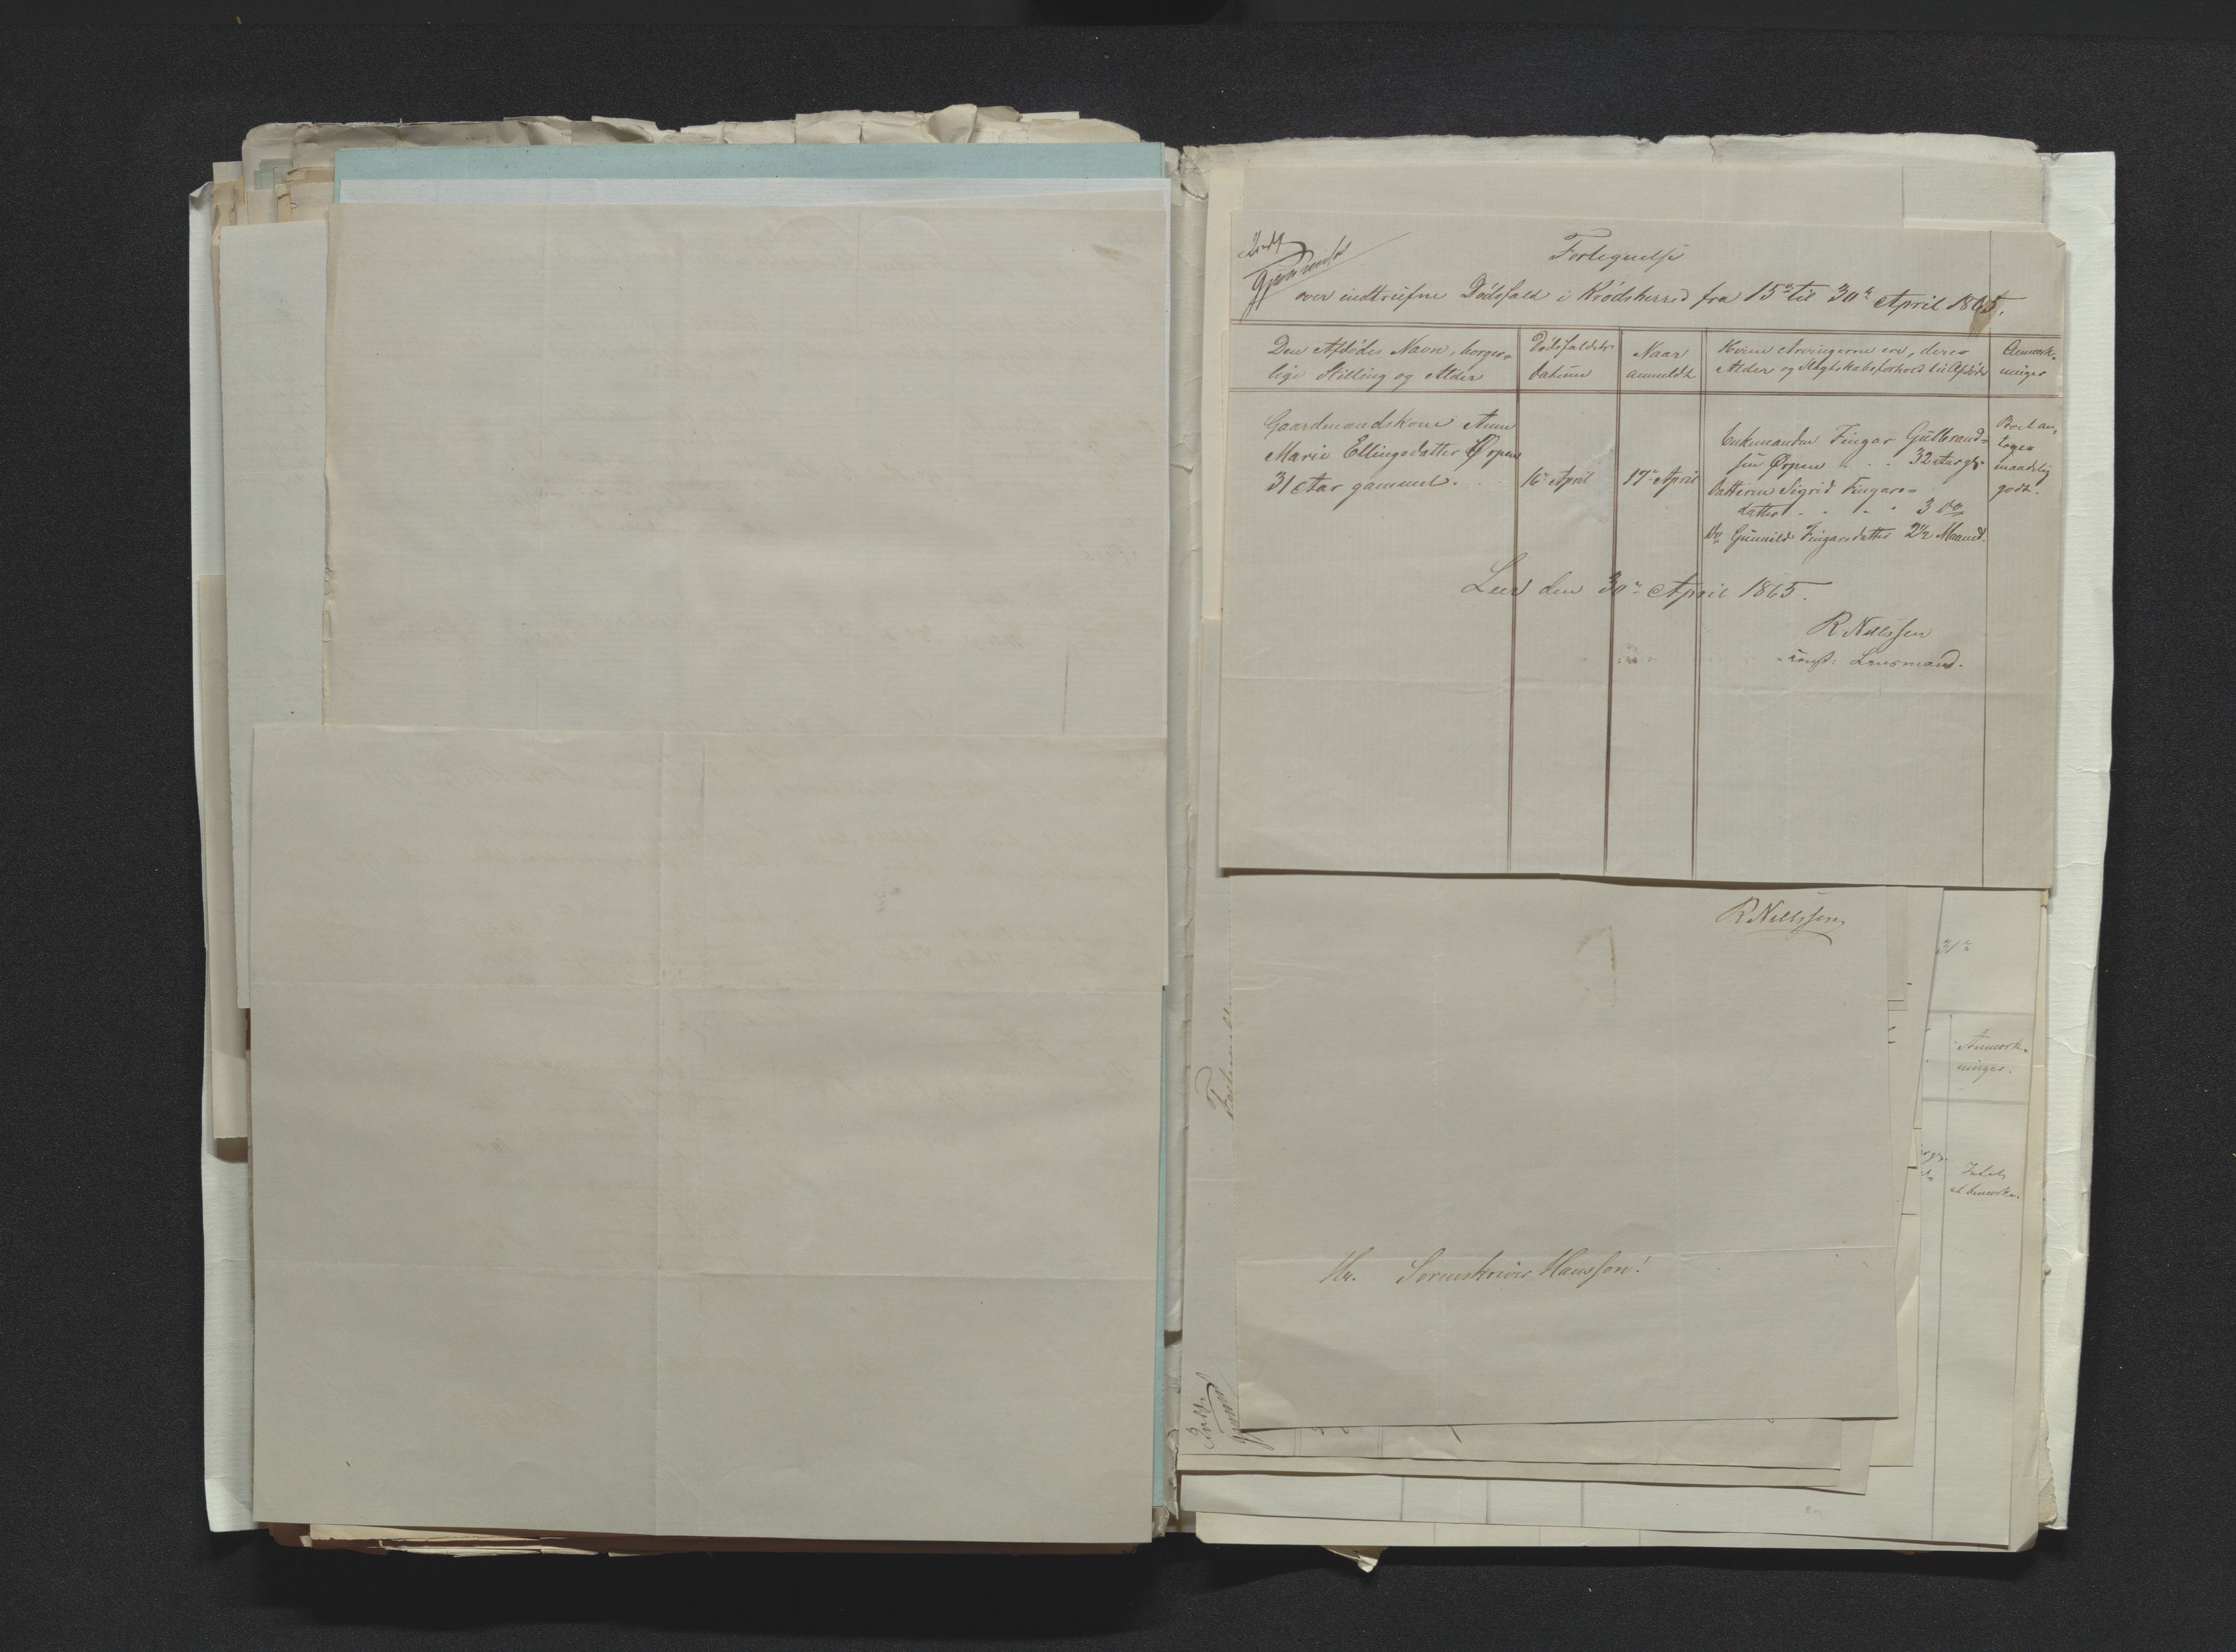 Indt
Fortegnelse
over indtrufne Dødsfald i Krødsherred fra 15de til 30te April 1865.
Den Afdødes Navn, borger-
lige Stilling og Alder
Dødsfaldets
Datum
Naar
anmeldt
Hvem Arvingerne ere, deres
Alder og Slægtskabsforhold til Afdøde
Anmærk-
ninger
Gaardmandskone Anne
Marie Ellingsdatter Ørpen
31 Aar gammel.
16de April
17de April
Enkemanden Fingar Gulbrand-
sen Ørpen . . . 32 Aar gl.
Datteren Sigrid Fingars-
datter . . . . 3 do
do Gunnild Fingarsdatter 2½ Maaned.
Boet an-
tages
maadelig
godt.
Leer den 30te April 1865.
R Nilssen
const: Lensmand.
R Nilssen
Hr. Sorenskriver Hansson!
31te
Anmærk-
ninger.
Intet
at bemærke.